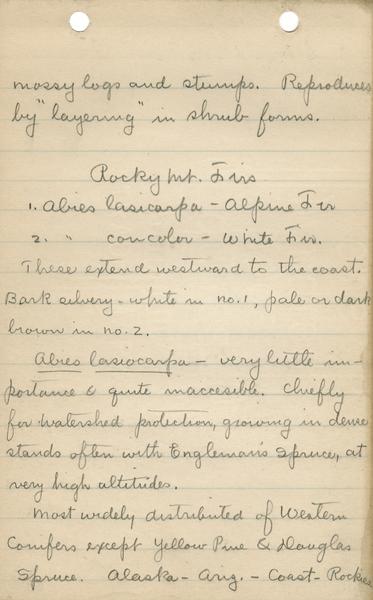 mossy logs and stumps. Reproduces
by "layering" in shrub forms.
Rocky Mt. Firs
1. Abies lasicarpa - Alpine Fir
2. " concolor - White Fir.
These extend westward to the coast.
Bark silvery-white in no. 1, pale or dark
brown in no. 2.
Abies lasiocarpa - very little im-
portance & quite inaccesible. Chiefly
for watershed protection, growing in dense
stands often with Engleman's Spruce, at
very high altitudes.
Most widely distributed of Western
Conifers except Yellow Pine & Douglas
Spruce. Alaska - Ariz. - Coast - Rockies